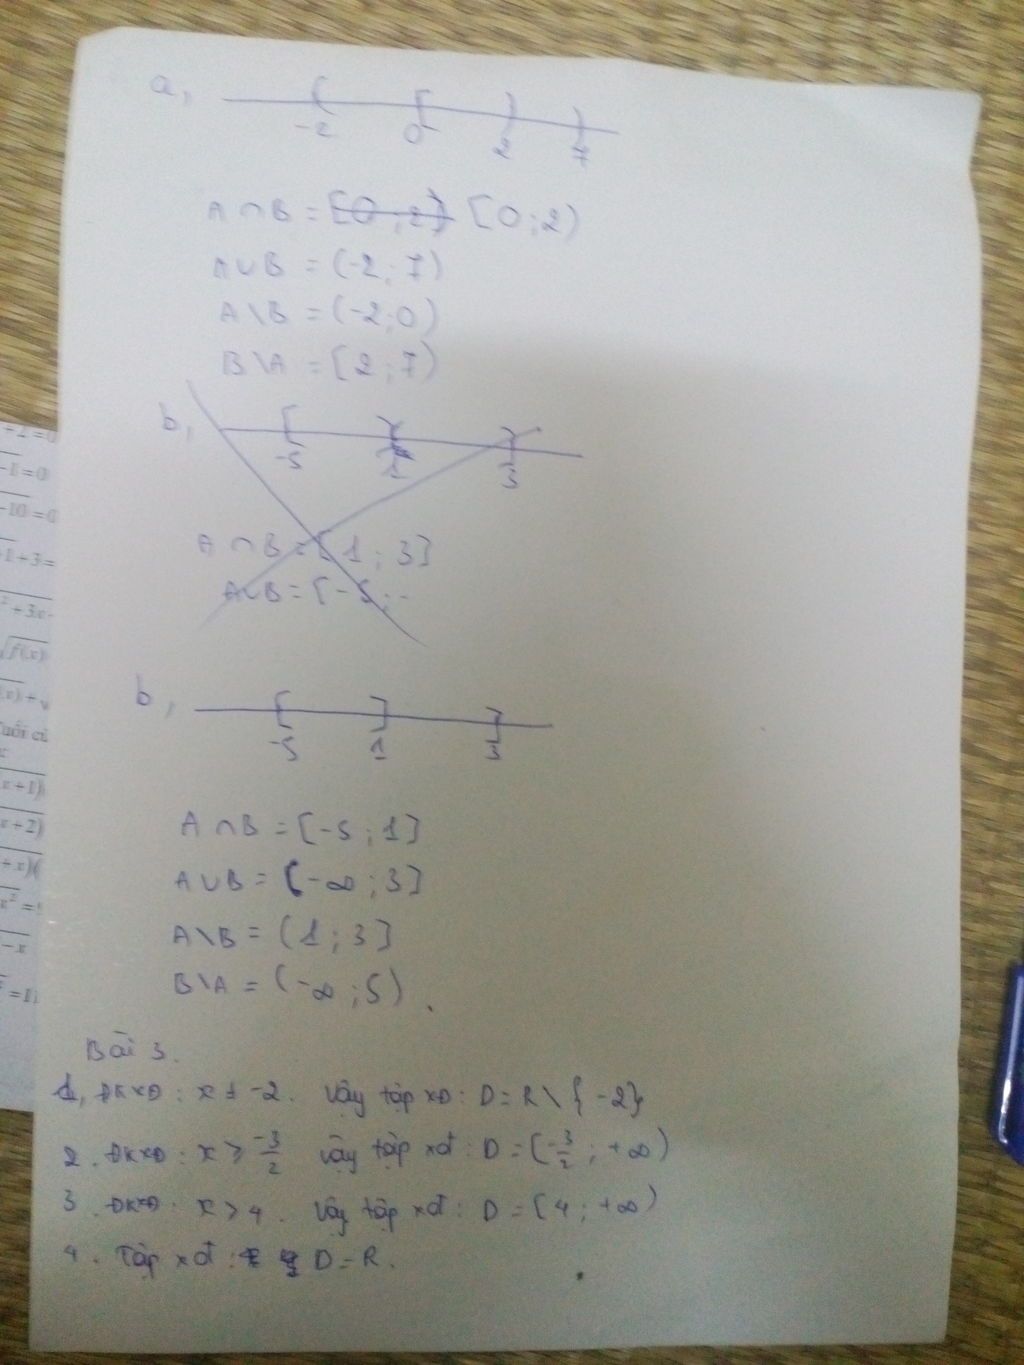 a,
-2 0 2 7
A∩B = [0;2) [0;2)
A∪B = (-2;7)
A\B = (-2;0)
B\A = [2;7)
b,
-5 1 3
A∩B = [1;3]
A∪B = [-5;-
b,
-5 1 3
A∩B = [-5;1]
A∪B = (-∞;3]
A\B = (1;3]
B\A = (-∞;5).
Bài 3.
1, ĐKXĐ: x ≠ -2. Vậy tập xđ: D = R\{-2}
2. ĐKXĐ: x ≥ -3/2 Vậy tập xđ: D = [-3/2; +∞)
3. ĐKXĐ: x > 4. Vậy tập xđ: D = [4; +∞)
4. Tập xđ: D = R.
+2=0
-1=0
-10=0
+3=
²+3x-
√f(x)
(x)+√
x+1)
x+2)
+x)(
x²=
-x
=1